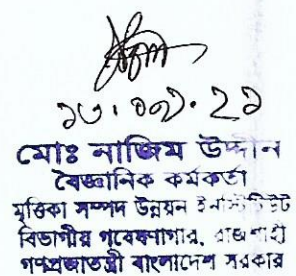 ১৩.০৯.২১
মোঃ নাজিম উদ্দীন
বৈজ্ঞানিক কর্মকর্তা
মৃত্তিকা সম্পদ উন্নয়ন ইনস্টিটিউট
বিভাগীয় গবেষণাগার, রাজশাহী
গণপ্রজাতন্ত্রী বাংলাদেশ সরকার